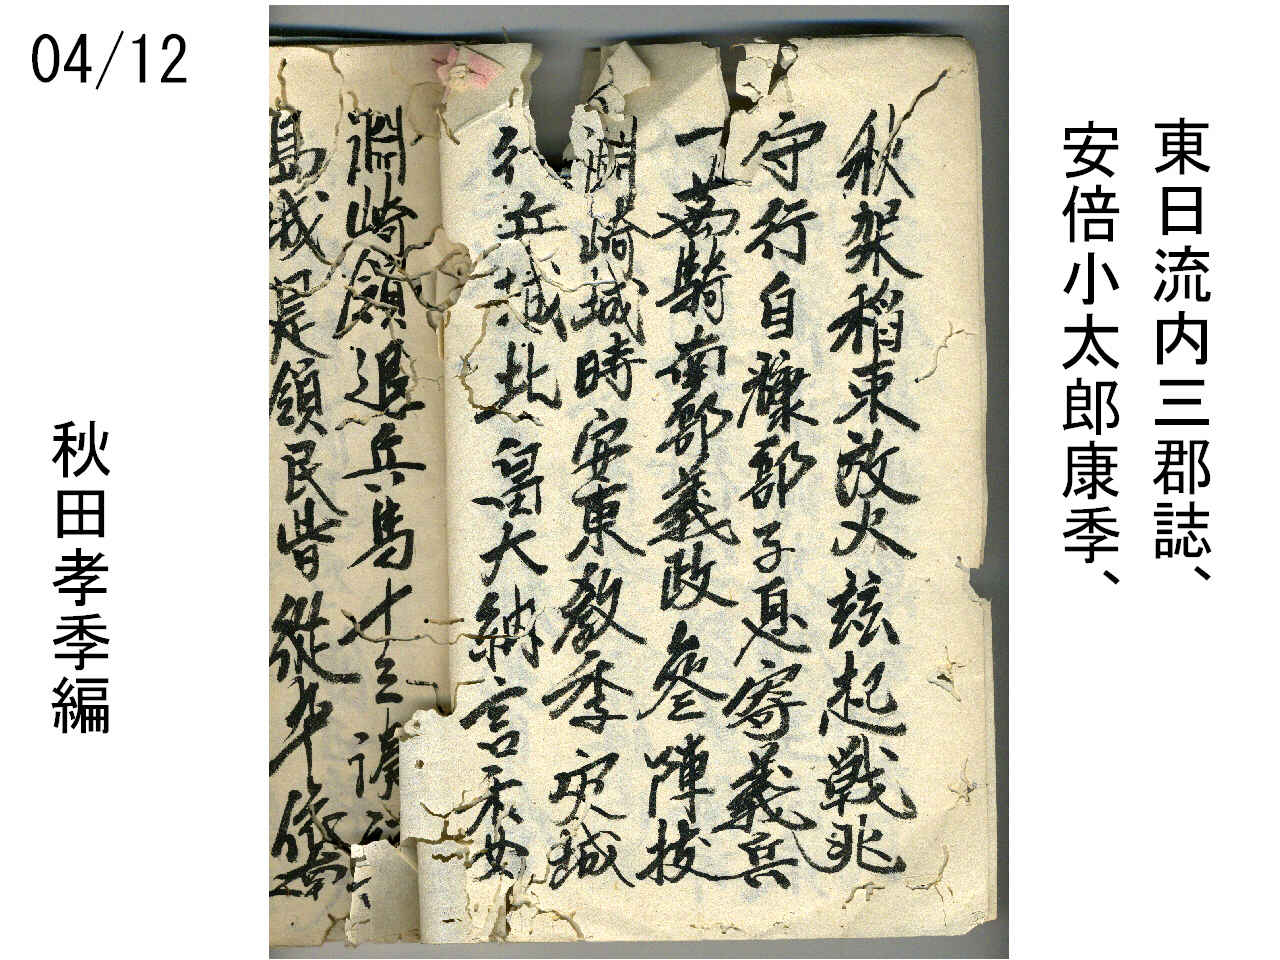 04/12
東日流内三郡誌、
安倍小太郎康季、
秋架稲束放火玆起戦兆
守行自糠部子息寄義兵
一萬騎南部義政参陣抜
湖崎城時安東教季灾城
行丘城北畠大納言
淵崎領退兵馬十三湊
島我是領民皆従卒
秋田孝季編